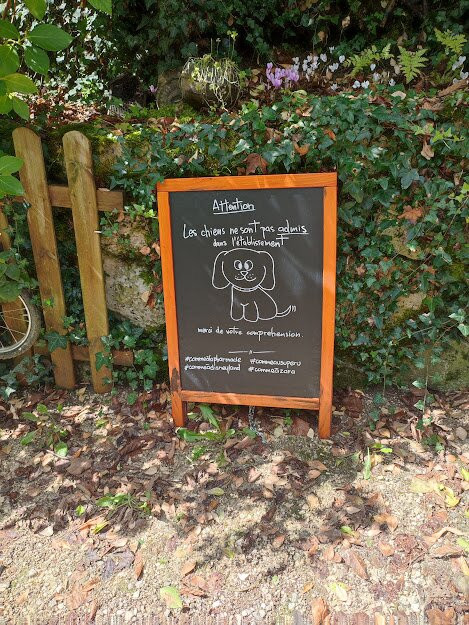 Attention
Les chiens ne sont pas admis
dans l'établissement
merci de votre compréhension.
#commeàlapharmacie #commeausuperu
#commeàdisneyland #commeàzara